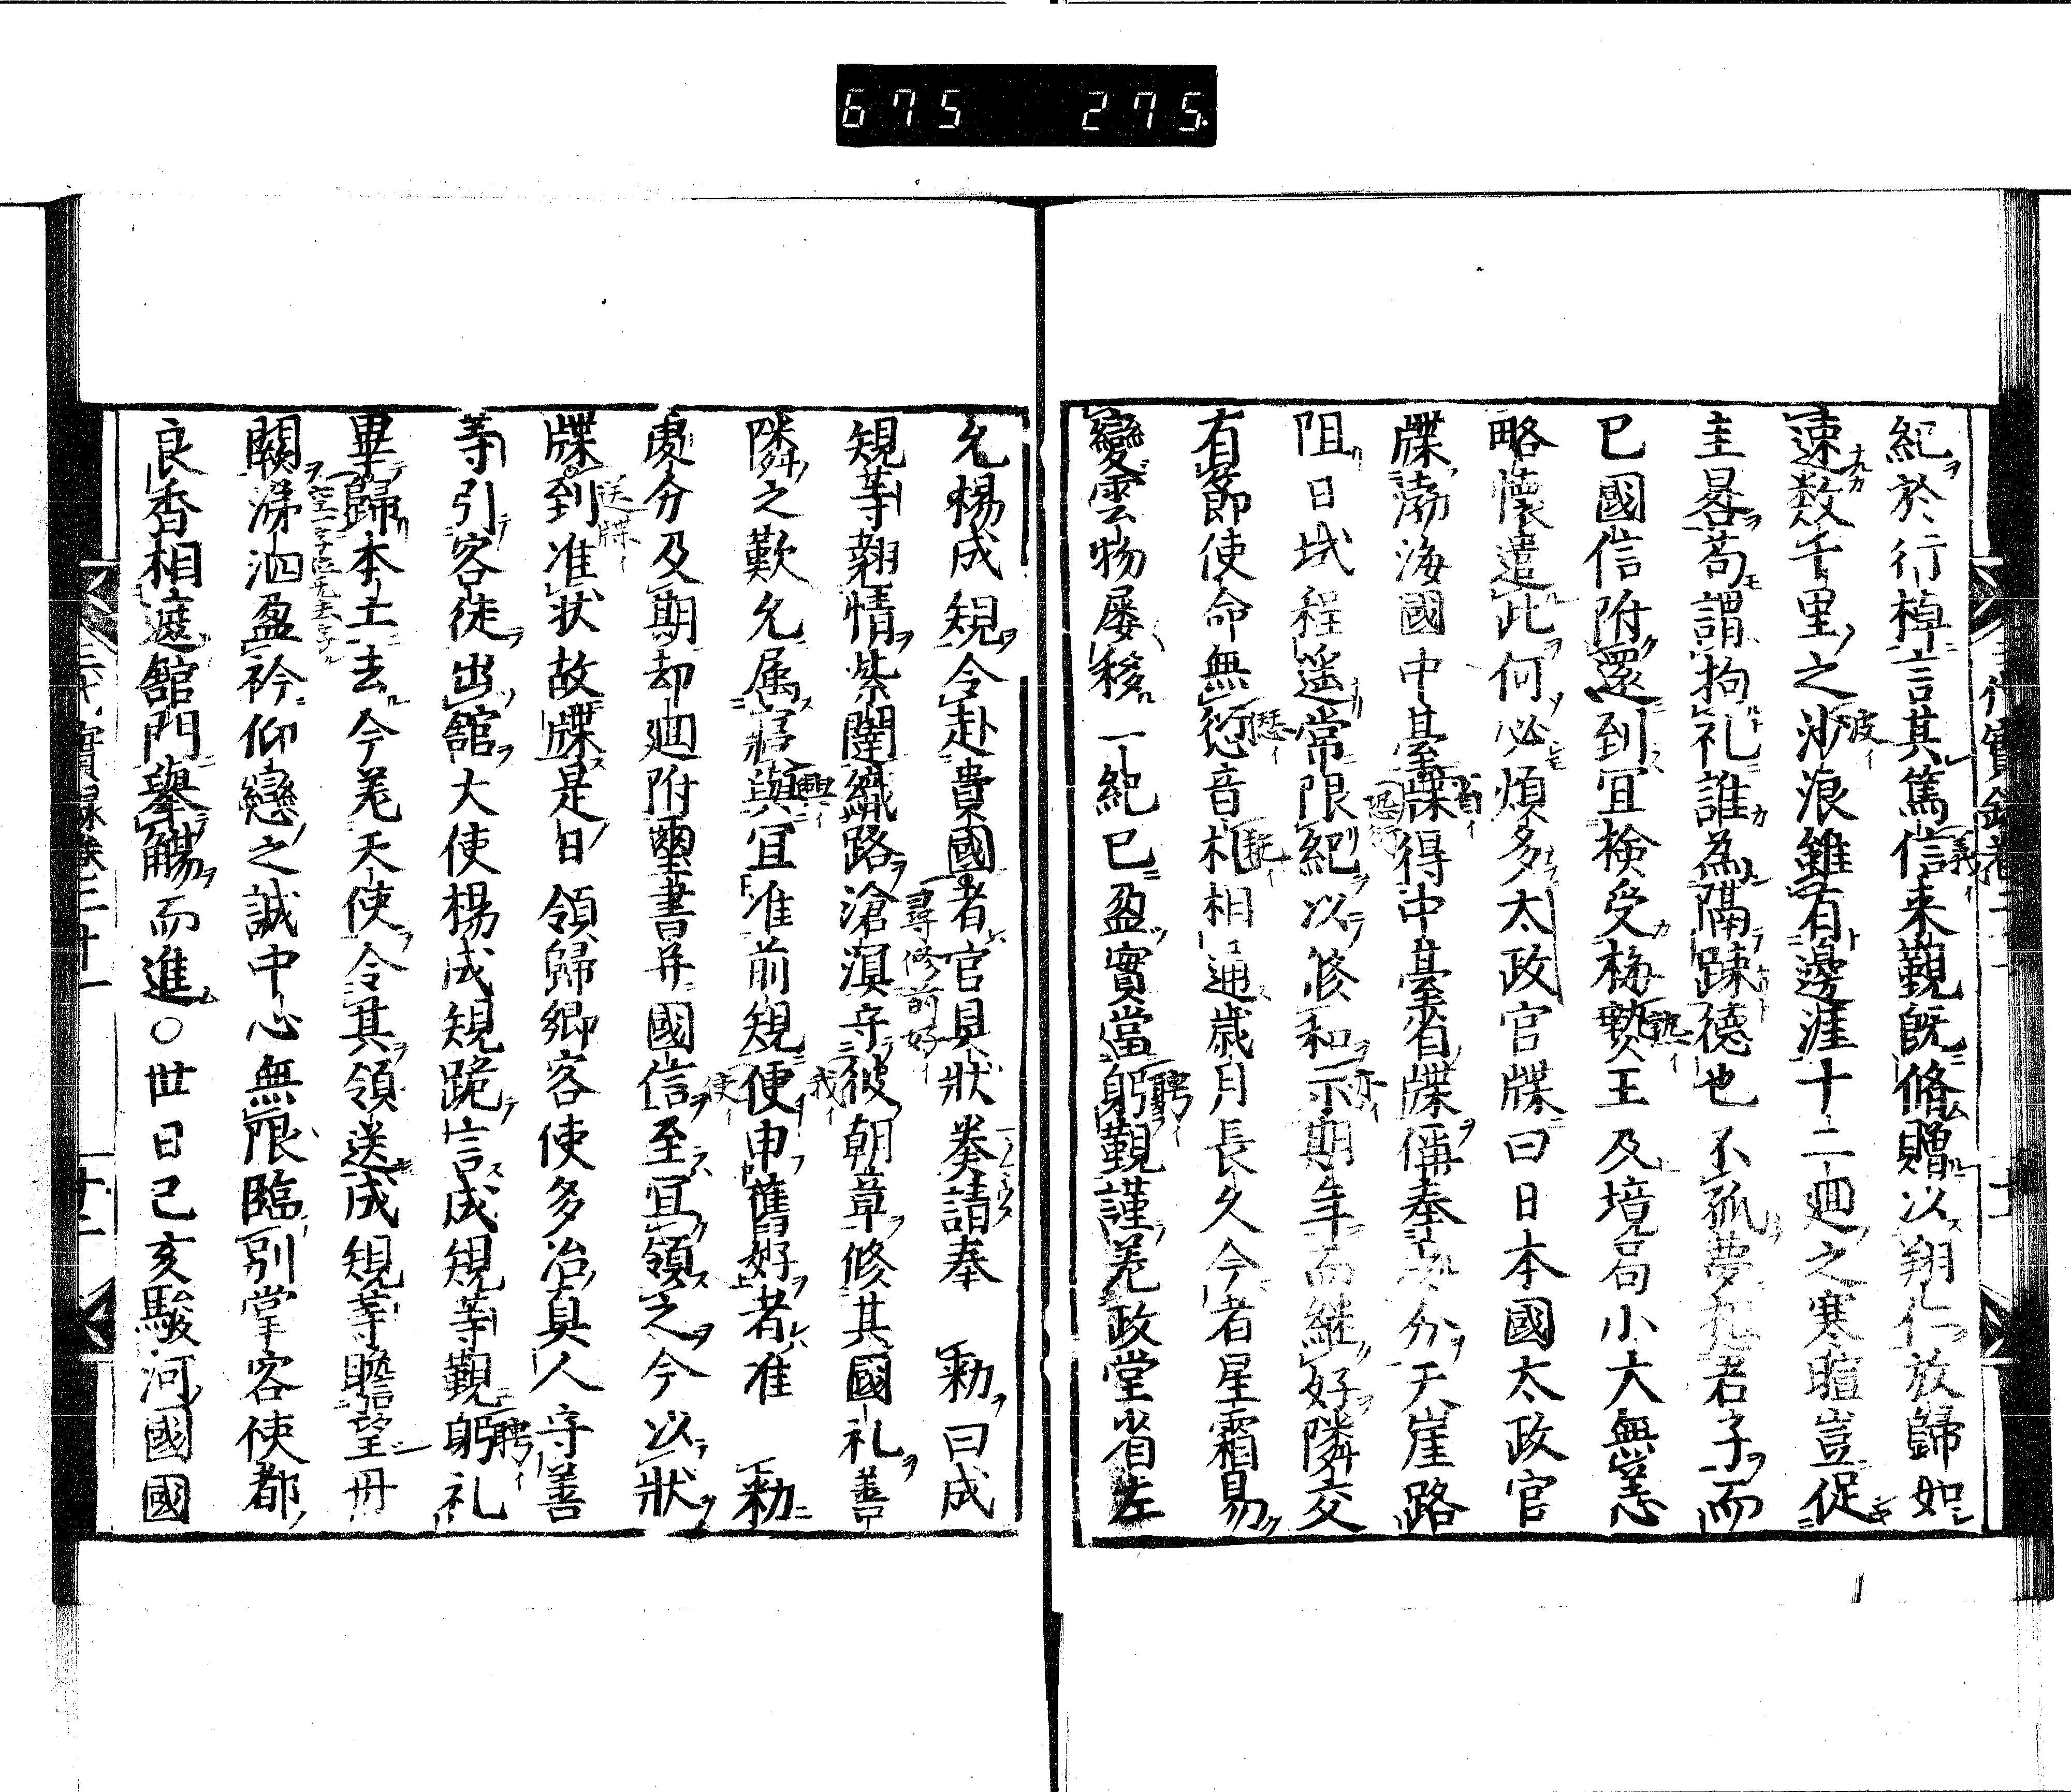 675 275.
紀於行棹言其篤信来覲既俻贈以翔仁放歸如
速数千里之沙浪雖有邊涯十二廻之寒暄豈促
圭晷苟謂拘礼誰為隔踈德也不孤夢想君子而
已國信附還到宜検受梅𤍠王及境局小大無恙
略懐遣此何必煩多太政官牒曰日本國太政官
牒渤海國中臺牒得中臺省牒偁奉處分天崖路
阻日域程遥常限紀以修和示期年而継好隣交
有節使命無愆音札相通歳月長久今者星霜易
變雲物屡移一紀已盈實當躬覲謹差政堂省左
允楊成規令赴貴國者官具狀奏請奉 勅曰成
規等翹情紫闥織路滄溟守彼朝章修其國礼善
隣之歎允属寤與宜准前規便申舊好者准 勅
處分及期却廻附璽書并國信至宜領之今以狀
牒到准状故牒是日領歸郷客使多治真人守善
等引客徒出舘大使楊成規跪言成規等覲躬礼
畢歸本土去今差天使令其領送成規等瞻望丹
闕涕泗盈衿仰戀之誠中心無限臨別掌客使都
良香相遮舘門擧觴而進○丗日己亥駿河國國
三代實録巻二十一 十二